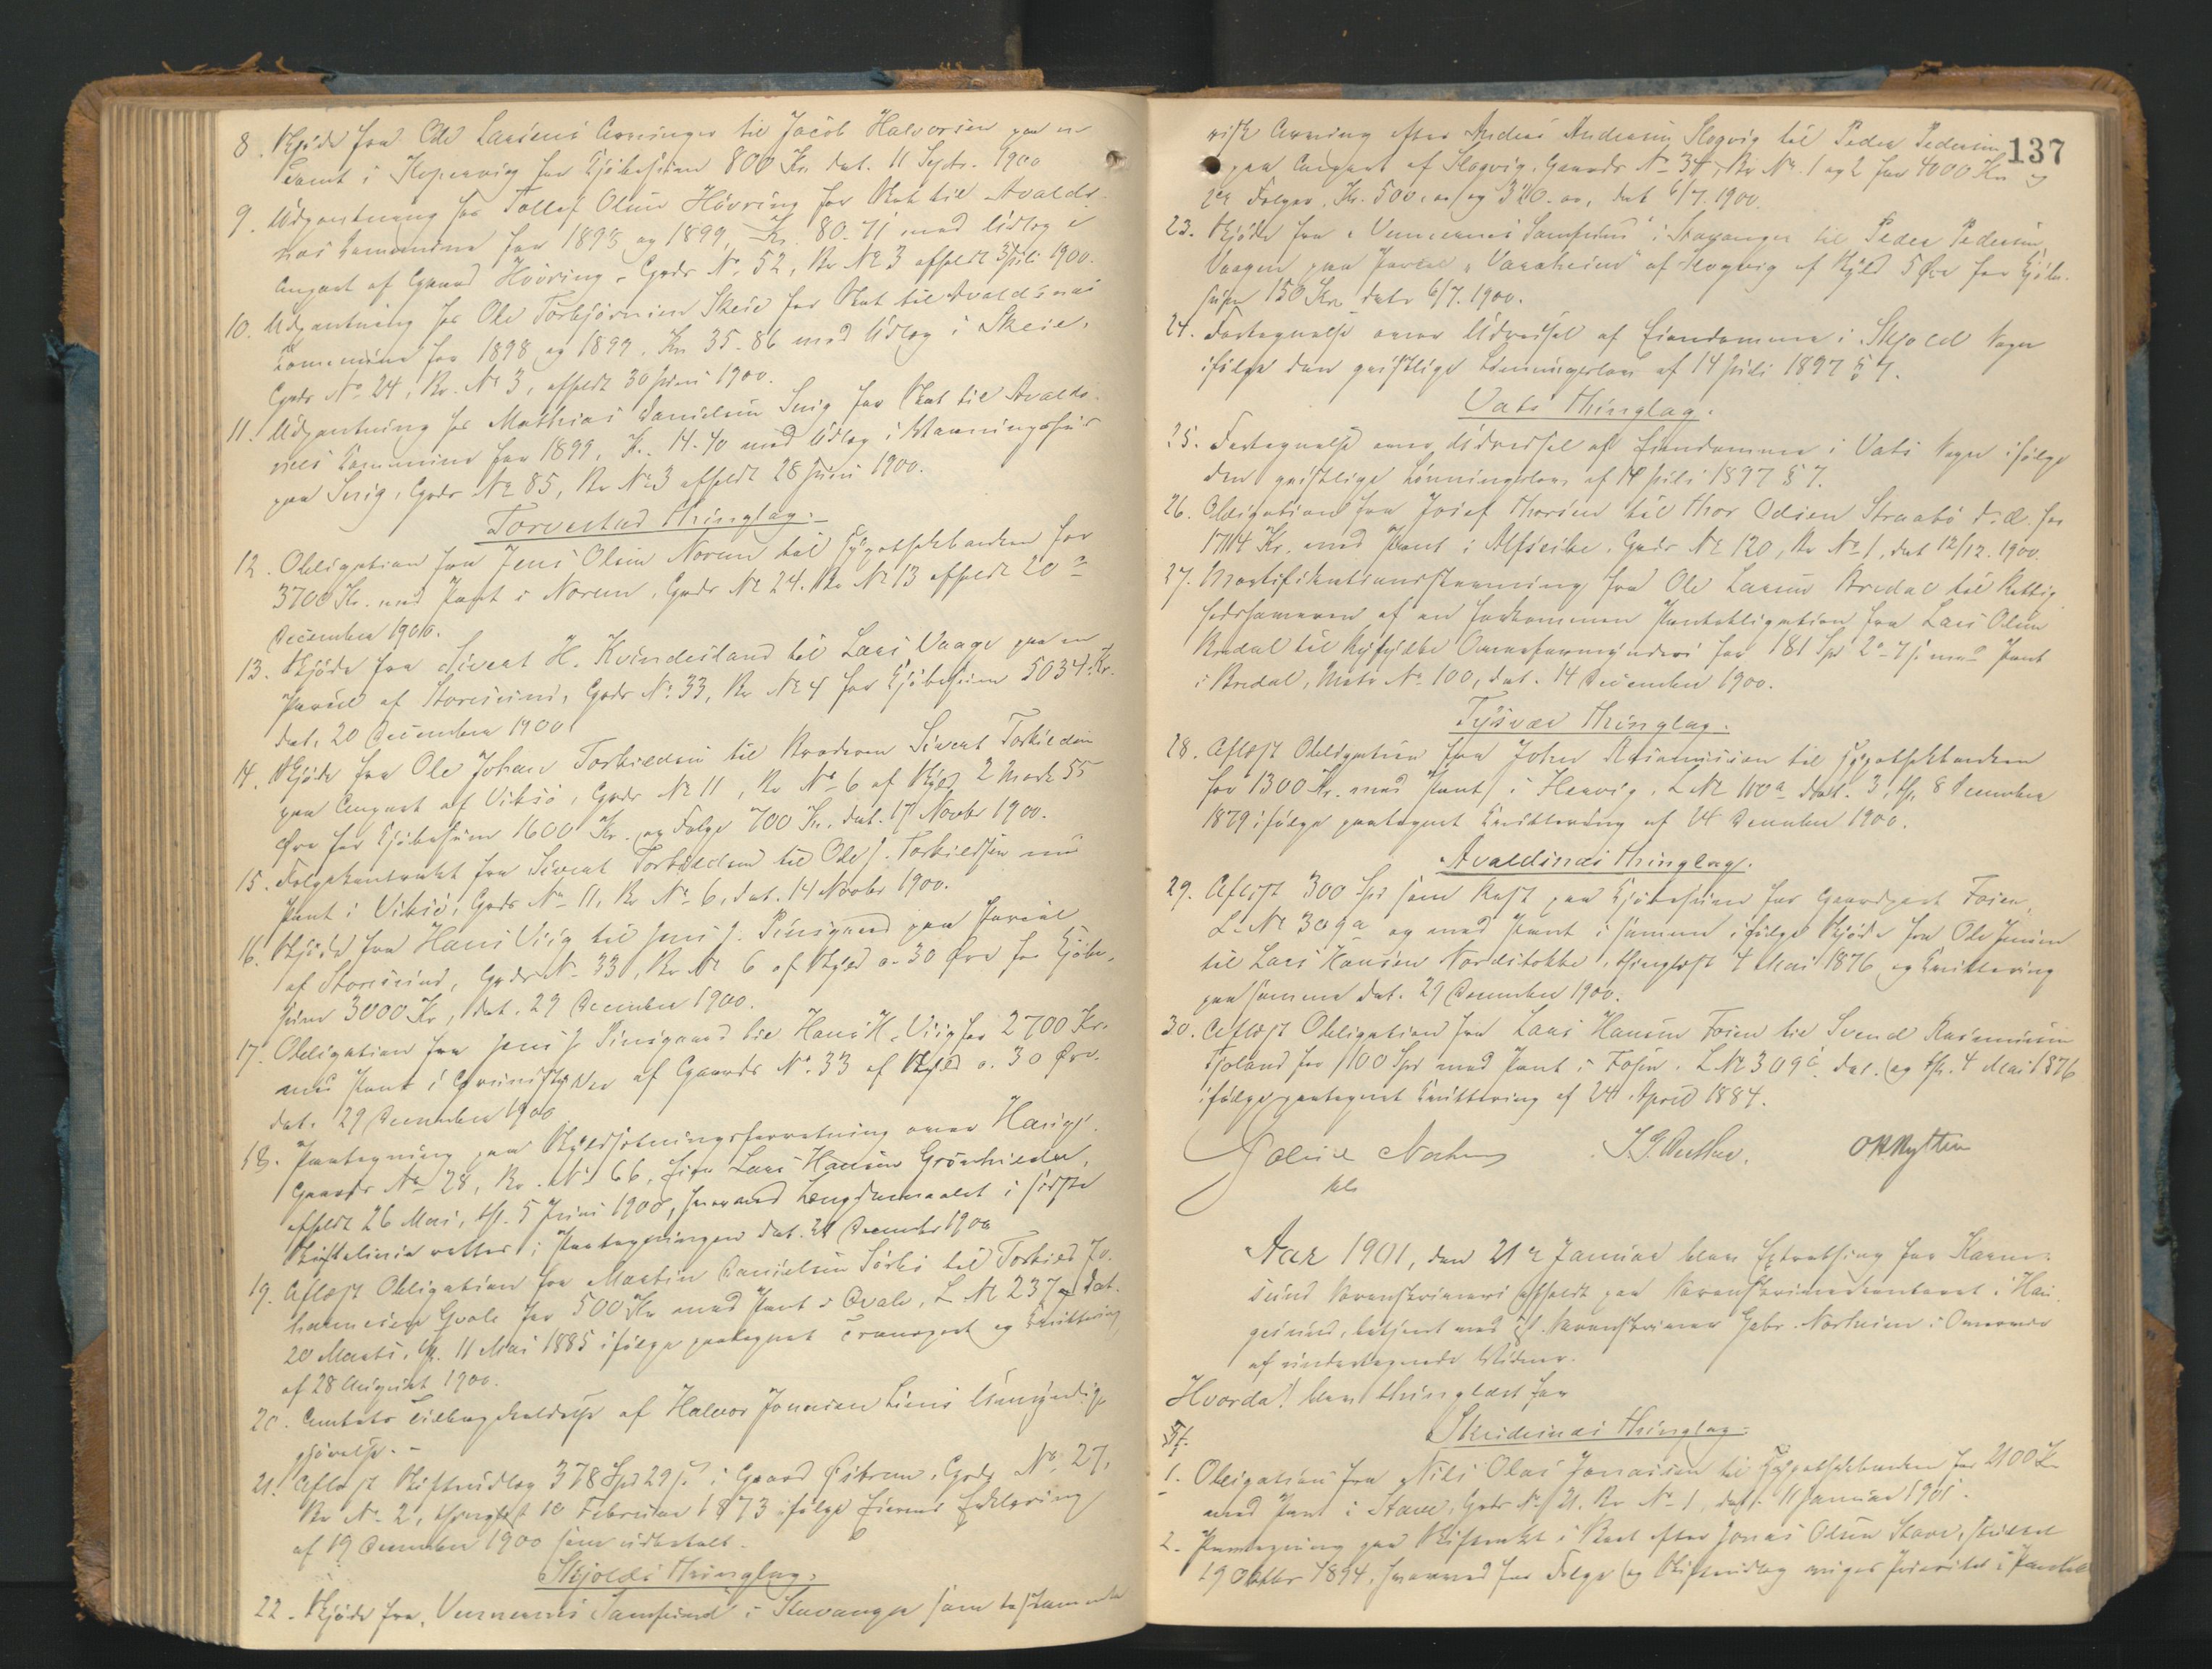 8. Skjøde fra Ole Larsens Arvinger til Jacob Halvorsen paa en
Tomt i Kopervig for Kjøbesum 800 Kr. dat. 11 Septr. 1900
9. Udpantning hos Tollef Olsen Hövring for Skat til Avalds-
næs Kommune for 1898 og 1899, Kr. 80.71 med Udlæg i
Anpart af Gaard Hövring, Grds No. 52, Br No 3 afholdt 3 Juli 1900.
10. Udpantning hos Ole Torbjörnsen Skeie for Skat til Avaldsnæs
Kommune for 1898 og 1899, Kr 35.86 med Udlæg i Skeie,
Grds No 24, Br. No 3, afholdt 30 Juni 1900.
11. Udpantning hos Mathias Danielsen Snig for Skat til Avalds-
næs Kommune for 1899, Kr. 14.40 med Udlæg i Vaaningshus
paa Snig, Grds No 85, Br No 3 afholdt 28 Juni 1900.
Torvestad Thinglag.
12. Obligation fra Jens Olsen Norem til Hypothekbanken for
3700 Kr. med Pant i Norem, Grds No 24, Br No 13 afholdt 20de
December 1900.
13. Skjøde fra Sivert H. Kvindesland til Lars Vaage paa en
Parcel af Storesund, Grds No. 33, Br No 4 for Kjøbesum 5034 Kr.
dat. 20 December 1900
14. Skjøde fra Ole Johan Torkildsen til Broderen Sivert Torkildsen
paa Anpart af Viksö, Grds No 11, Br No 6 af Skyld 2 Mark 55
Øre for Kjøbesum 1600 Kr. og Folge 700 Kr. dat. 17 Novbr 1900.
15. Folgekontrakt fra Sivert Torkildsen til Ole J. Torkildsen med
Pant i Viksö, Grds No 11, Br No 6, dat. 14 Novbr 1900.
16. Skjøde fra Hans Viig til Jens J. Pinsgaard paa Parcel
af Storesund, Grds No. 33, Br No 6 af Skyld 0.30 Øre for Kjøbe-
sum 3000 Kr, dat. 29 December 1900.
17. Obligation fra Jens J. Pinsgaard til Hans H. Viig for 2700 Kr.
med Pant i Grundstykke af Gaards No. 33 af Skyld 0.30 Øre.
dat. 29 December 1900
18. Paategning paa Skyldsetningsforretning over Hauge
Gaards No 28, Br. No 66, Eier Lars Hansen Grönhilder,
afholdt 26 Mai, thl. 5 Juni 1900, hvorved Længdemaalet i sidste
Skiftelinie rettes i Paategningen dat. 24 December 1900
19. Aflæst Obligation fra Martin Danielsen Sörbö til Torkild Jo-
hannesen Qvale for 500 Kr med Pant i Qvale, L No 237 a dat.
20 Marts, thl. 11 Mai 1885 ifølge paategnet Transport og Kvittering
af 28 August 1900.
20. Amtets Tilbagekaldelse af Halvor Jonassen Liens Umyndig-
gjørelse.
21. Aflæst Skifteudlæg 378 Spd 29 s. i Gaard Östrem, Grds No. 27,
Br No. 2, thinglæst 10 Februar 1873 ifølge Eierens Erklæring
af 19 December 1900 som udbetalt.
Skjolds Thinglag.
22. Skjøde fra "Vennernes Samfund" i Stavanger som testamenta-
risk Arving efter Anders Andersen Slogvig til Peder Pedersen
137
paa Anpart af Slogvig, Gaards No 34, Br No. 1 og 2 for 4000 Kr og
Folger, Kr. 500.oo og 320.oo, dat 6/7. 1900.
23. Skjøde fra "Vennernes Samfund" i Stavanger til Peder Pedersen
Vaagen paa Parcel "Varaheim" af Slogvig af Skyld 5 Øre for Kjøbe-
sum 150 Kr dat 6/7. 1900.
24. Fortegnelse over Udveisel af Eiendomme i Skjold Sogn
ifølge den geistlige Lønningslov af 14 Juli 1897 § 7.
Vats Thinglag.
25. Fortegnelse over Udveisel af Eiendomme i Vats Sogn ifølge
den geistlige Lønningslov af 14 Juli 1897 § 7.
26. Obligation fra Josef Thorsen til Thor Odsen Straabö d.æ. for
1714 Kr. med Pant i Alfseike, Grds No 120, Br No 1, dat 12/12. 1900.
27. Mortifikationsstevning fra Ole Larsen Bredal til Rettig-
hedshaveren af en forkommen Pantobligation fra Lars Olsen
Bredal til Ryfylke Overformynderi for 181 Spd 2 - 7 s. med Pant
i Bredal, Matr No 100, dat. 14 December 1900.
Tysvær Thinglag.
28. Aflæst Obligation fra John Rasmussen til Hypothekbanken
for 1300 Kr. med Pant i Hervig, L No 110a dat. 3, thl. 8 December
1879 ifølge paategnet Kvittering af 24 December 1900.
Avaldsnæs Thinglag.
29. Aflæst 300 Spd som Rest paa Kjøbesum for Gaardpart Fosen
L No 309a og med Pant i samme ifølge Skjøde fra Ole Jensen
til Lars Hansen Nordstokke, thinglæst 4 Mai 1876 og Kvittering
paa samme dat. 29 December 1900.
30. Aflæst Obligation fra Lars Hansen Fosen til Svend Rasmussen
Fjoland for 100 Spd med Pant i Fosen, L No 309a dat. og thl. 4 Mai 1876
ifølge paategnet Kvittering af 24 April 1884.
Aar 1901, den 21de Januar blev Extrathing for Karm-
sund Sorenskriveri afholdt paa Sorenskriverkontoret i Hau-
gesund, betjent med Sorenskriver Gabr. Nordheim i Overvær
af undertegnede Vidner.
Hvorda! blev thinglæst for
Skudesnæs Thinglag.
1. Obligation fra Nils Olai Jonassen til Hypothekbanken for 2100 Kr
med Pant i Stave, Grds No 21, Br No 1, dat. 11 Januar 1901.
2. Paategning paa Skifteakt i Boet efter Jonas Olsen Stave, sluttet
19 Oktbr 1894, hvorved for Folge og Skifteudlæg viges Prioritet i Panteh